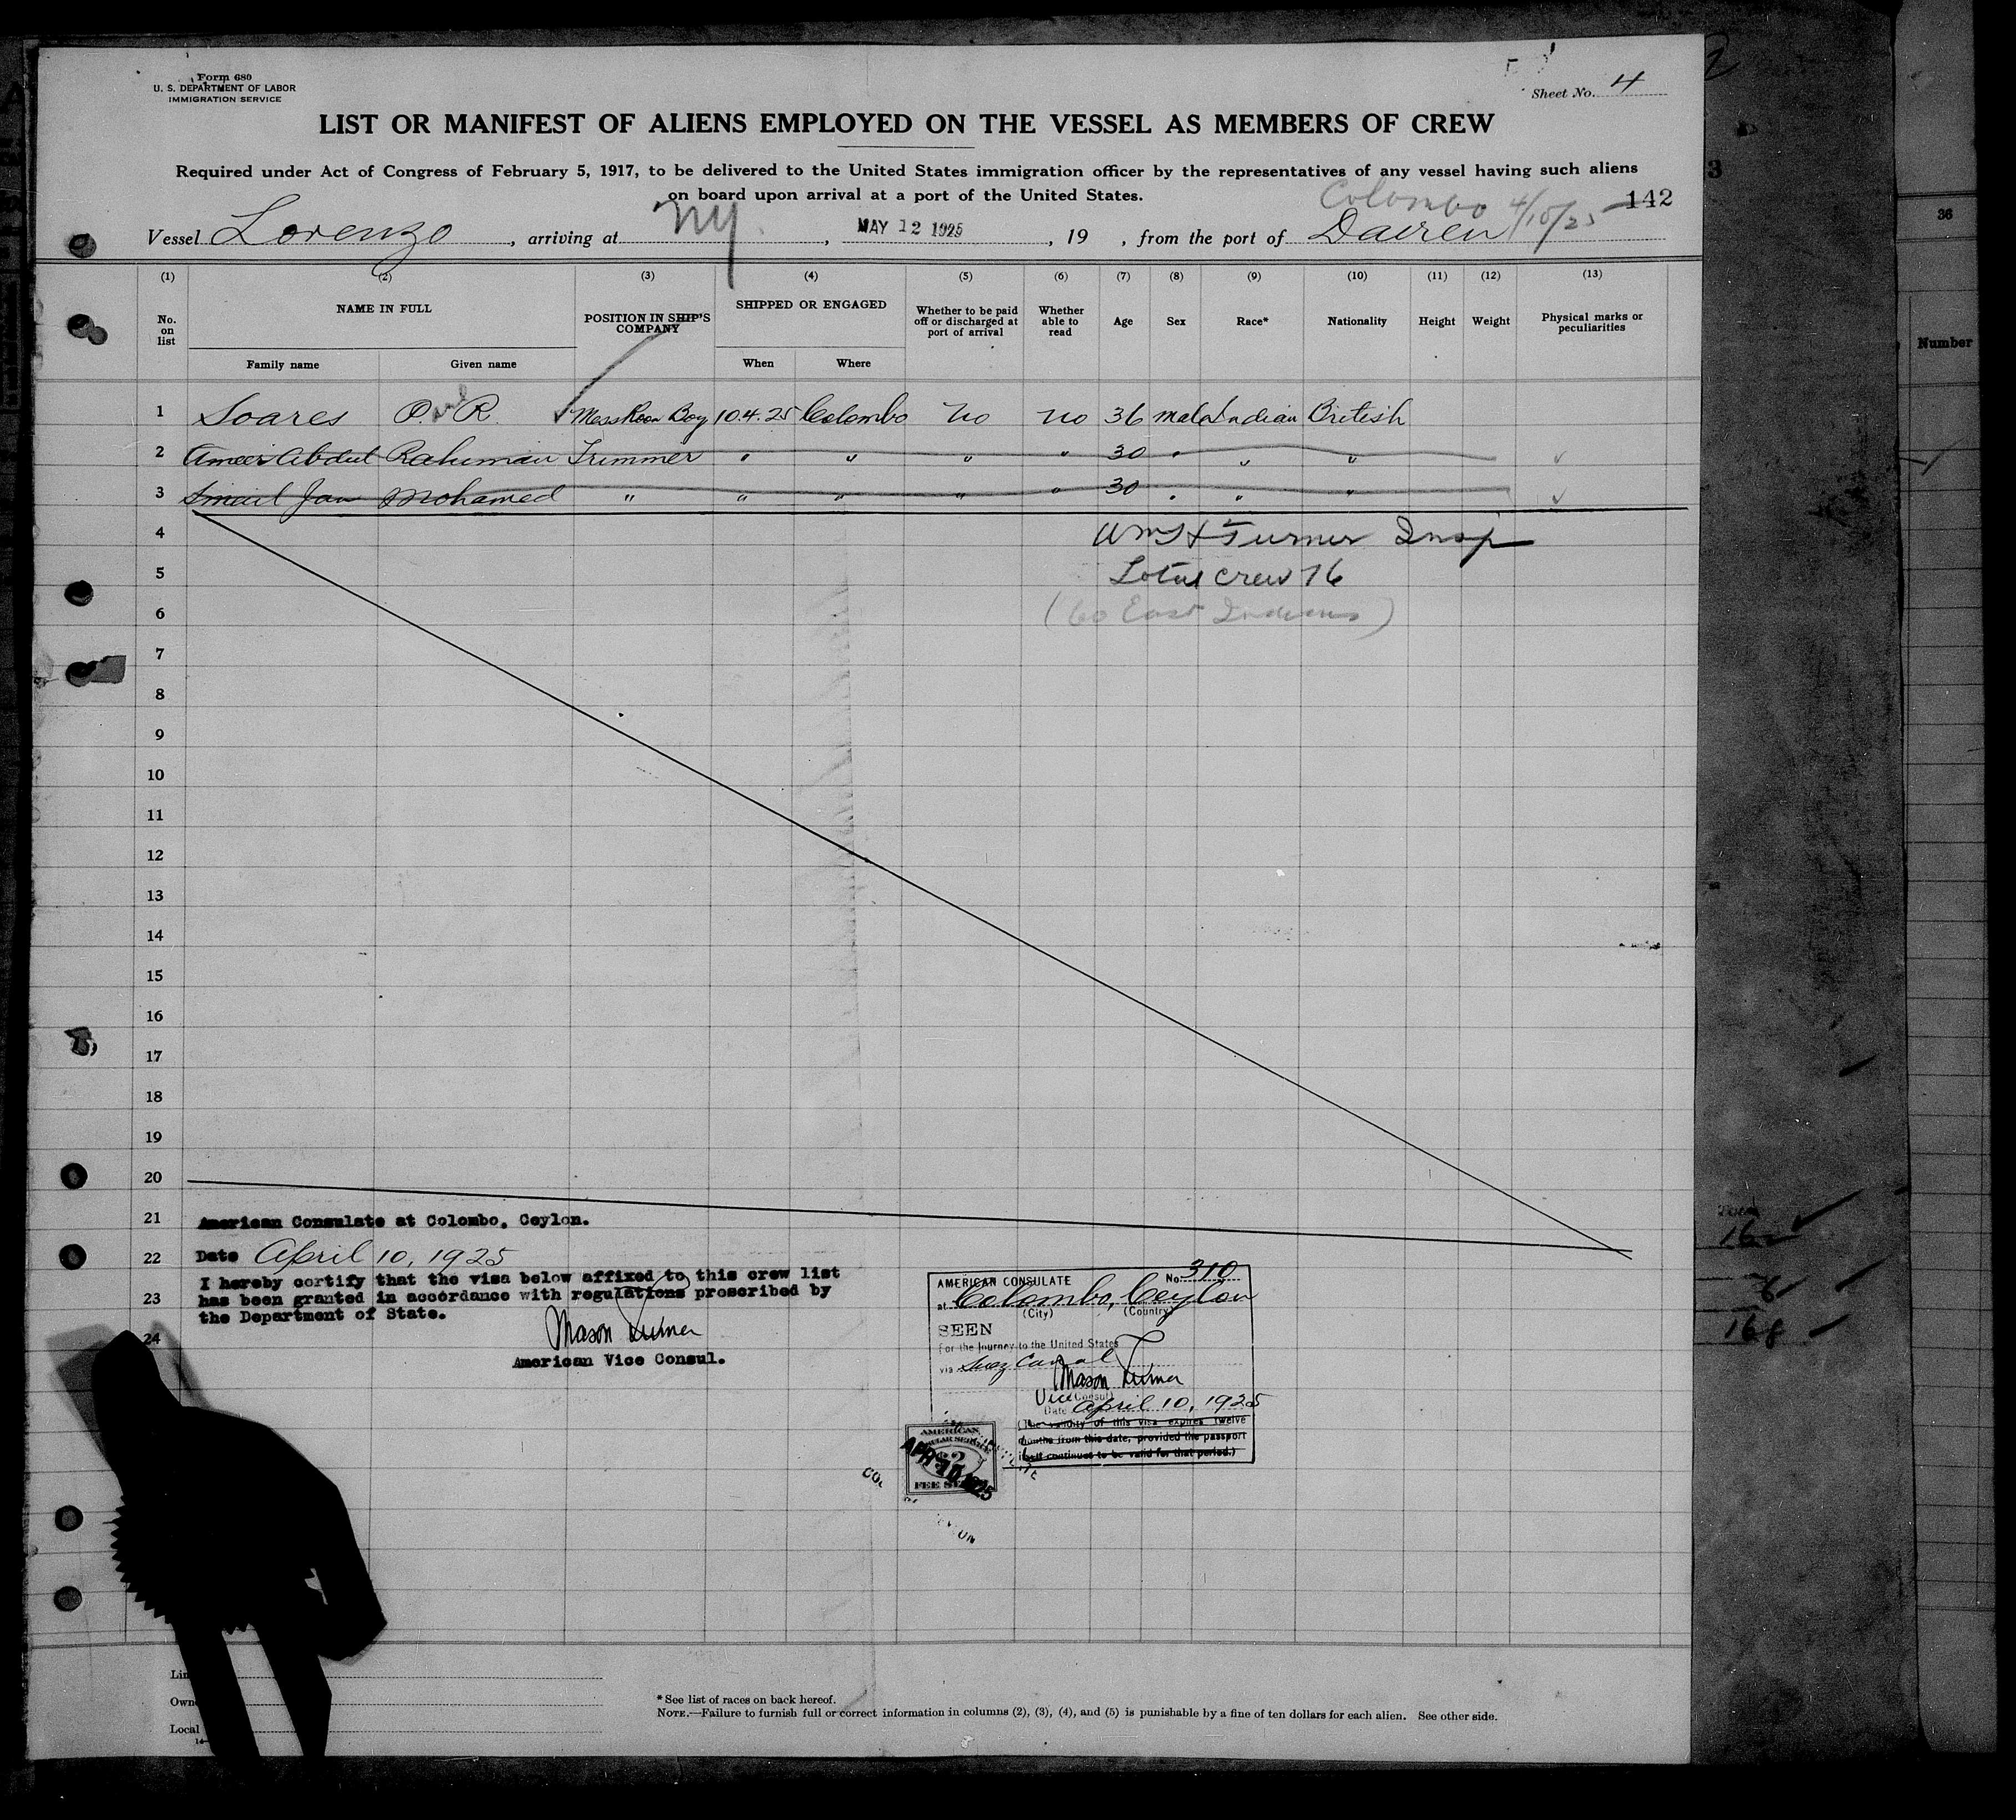 Form 680
U. S. DEPARTMENT OF LABOR
IMMIGRATION SERVICE
Sheet No. 4
LIST OR MANIFEST OF ALIENS EMPLOYED ON THE VESSEL AS MEMBERS OF CREW
Required under Act of Congress of February 5, 1917, to be delivered to the United States immigration officer by the representatives of any vessel having such aliens
on board upon arrival at a port of the United States.
Colombo 4/10/25 142
Vessel Lorenzo, arriving at NY., MAY 12 1925, 19 , from the port of Dairen
(1) (2) (3) (4) (5) (6) (7) (8) (9) (10) (11) (12) (13)
No. on list NAME IN FULL POSITION IN SHIP'S COMPANY SHIPPED OR ENGAGED Whether to be paid off or discharged at port of arrival Whether able to read Age Sex Race* Nationality Height Weight Physical marks or peculiarities
Family name Given name When Where
1 Soares O. R. Mess Room Boy 10.4.25 Colombo No No 36 male Indian British
2 Ameer Abdul Rahiman Trimmer " " " " 30 " " "
3 Smail Jan Mohamed " " " " " 30 " " "
4 Wm H Turner Insp
5 Total crew 76
6 (60 East Indians)
7
8
9
10
11
12
13
14
15
16
17
18
19
20
21 American Consulate at Colombo, Ceylon.
22 Date April 10, 1925
I hereby certify that the visa below affixed to this crew list
23 has been granted in accordance with regulations prescribed by
the Department of State.
24 Mason Turner
American Vice Consul.
AMERICAN CONSULATE No. 310
at Colombo, Ceylon
(City) (Country)
SEEN
For the Journey to the United States
via Suez Canal
Mason Turner
Vice (Consul)
Date April 10, 1925
(The validity of this visa expires twelve
months from this date, provided the passport
itself continues to be valid for that period.)
AMERICAN
$2
APR 10 1925
FEE
Lin
Own
Local
*See list of races on back hereof.
NOTE.—Failure to furnish full or correct information in columns (2), (3), (4), and (5) is punishable by a fine of ten dollars for each alien. See other side.
3
36
Number
162
168